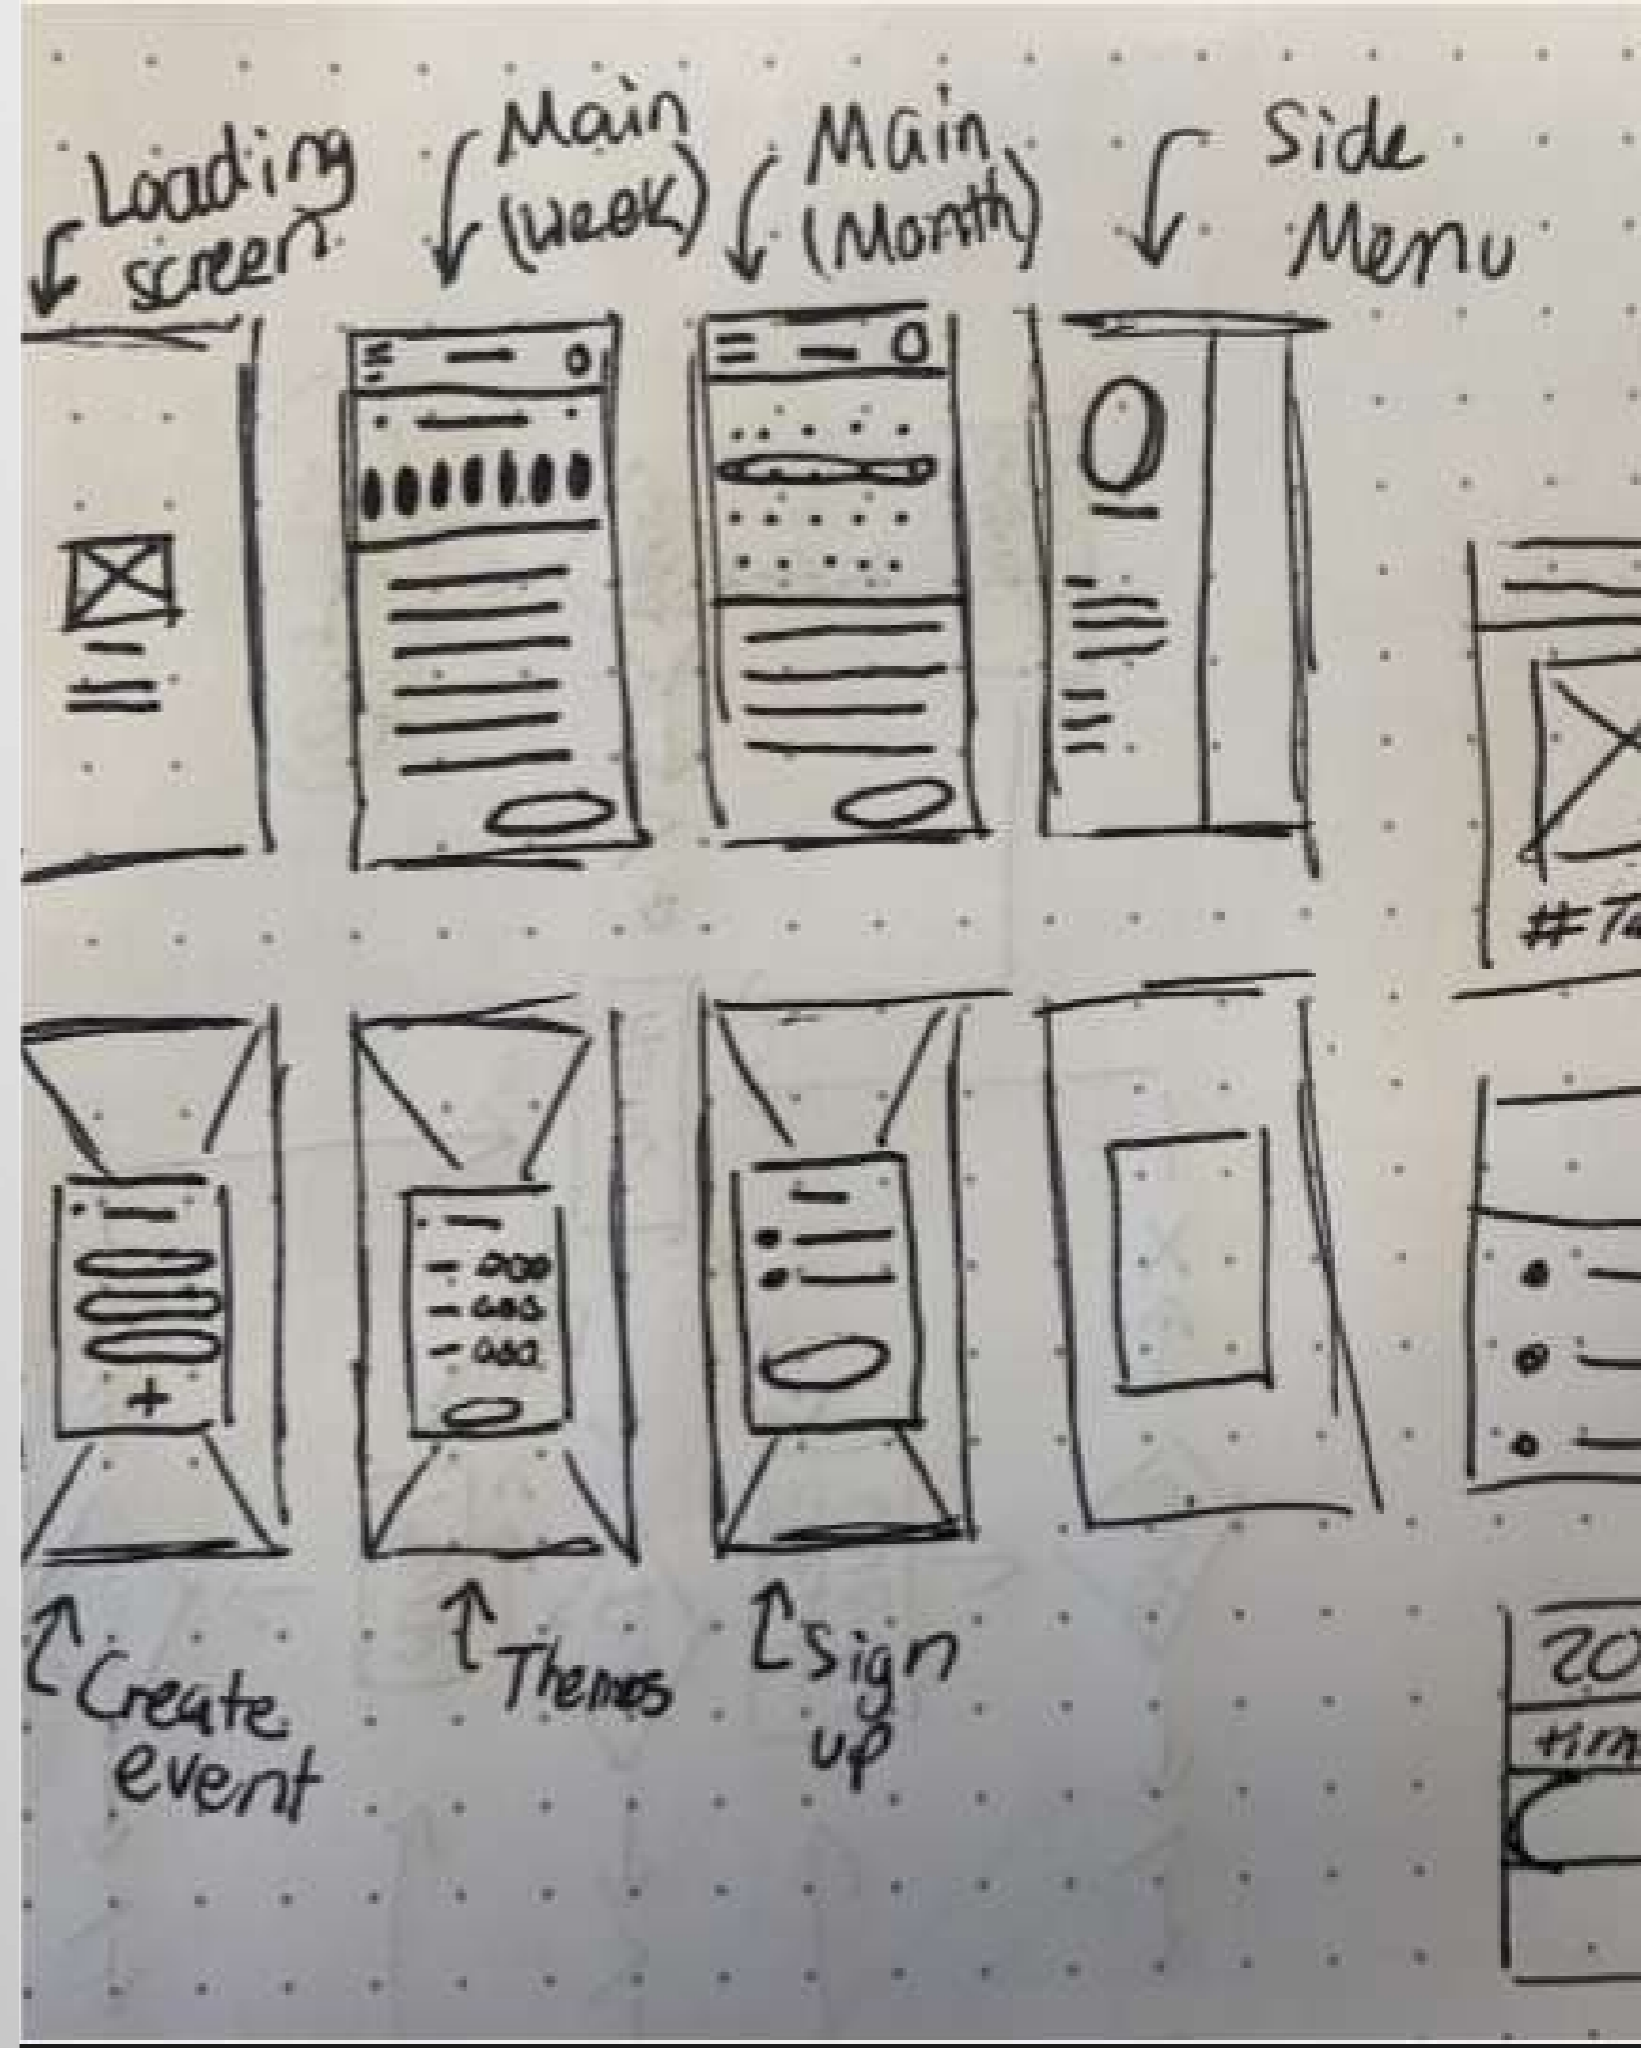 Loading
screen
Main
(Week)
Main
(Month)
Side
Menu
Create
event
Themes
Sign
up
20